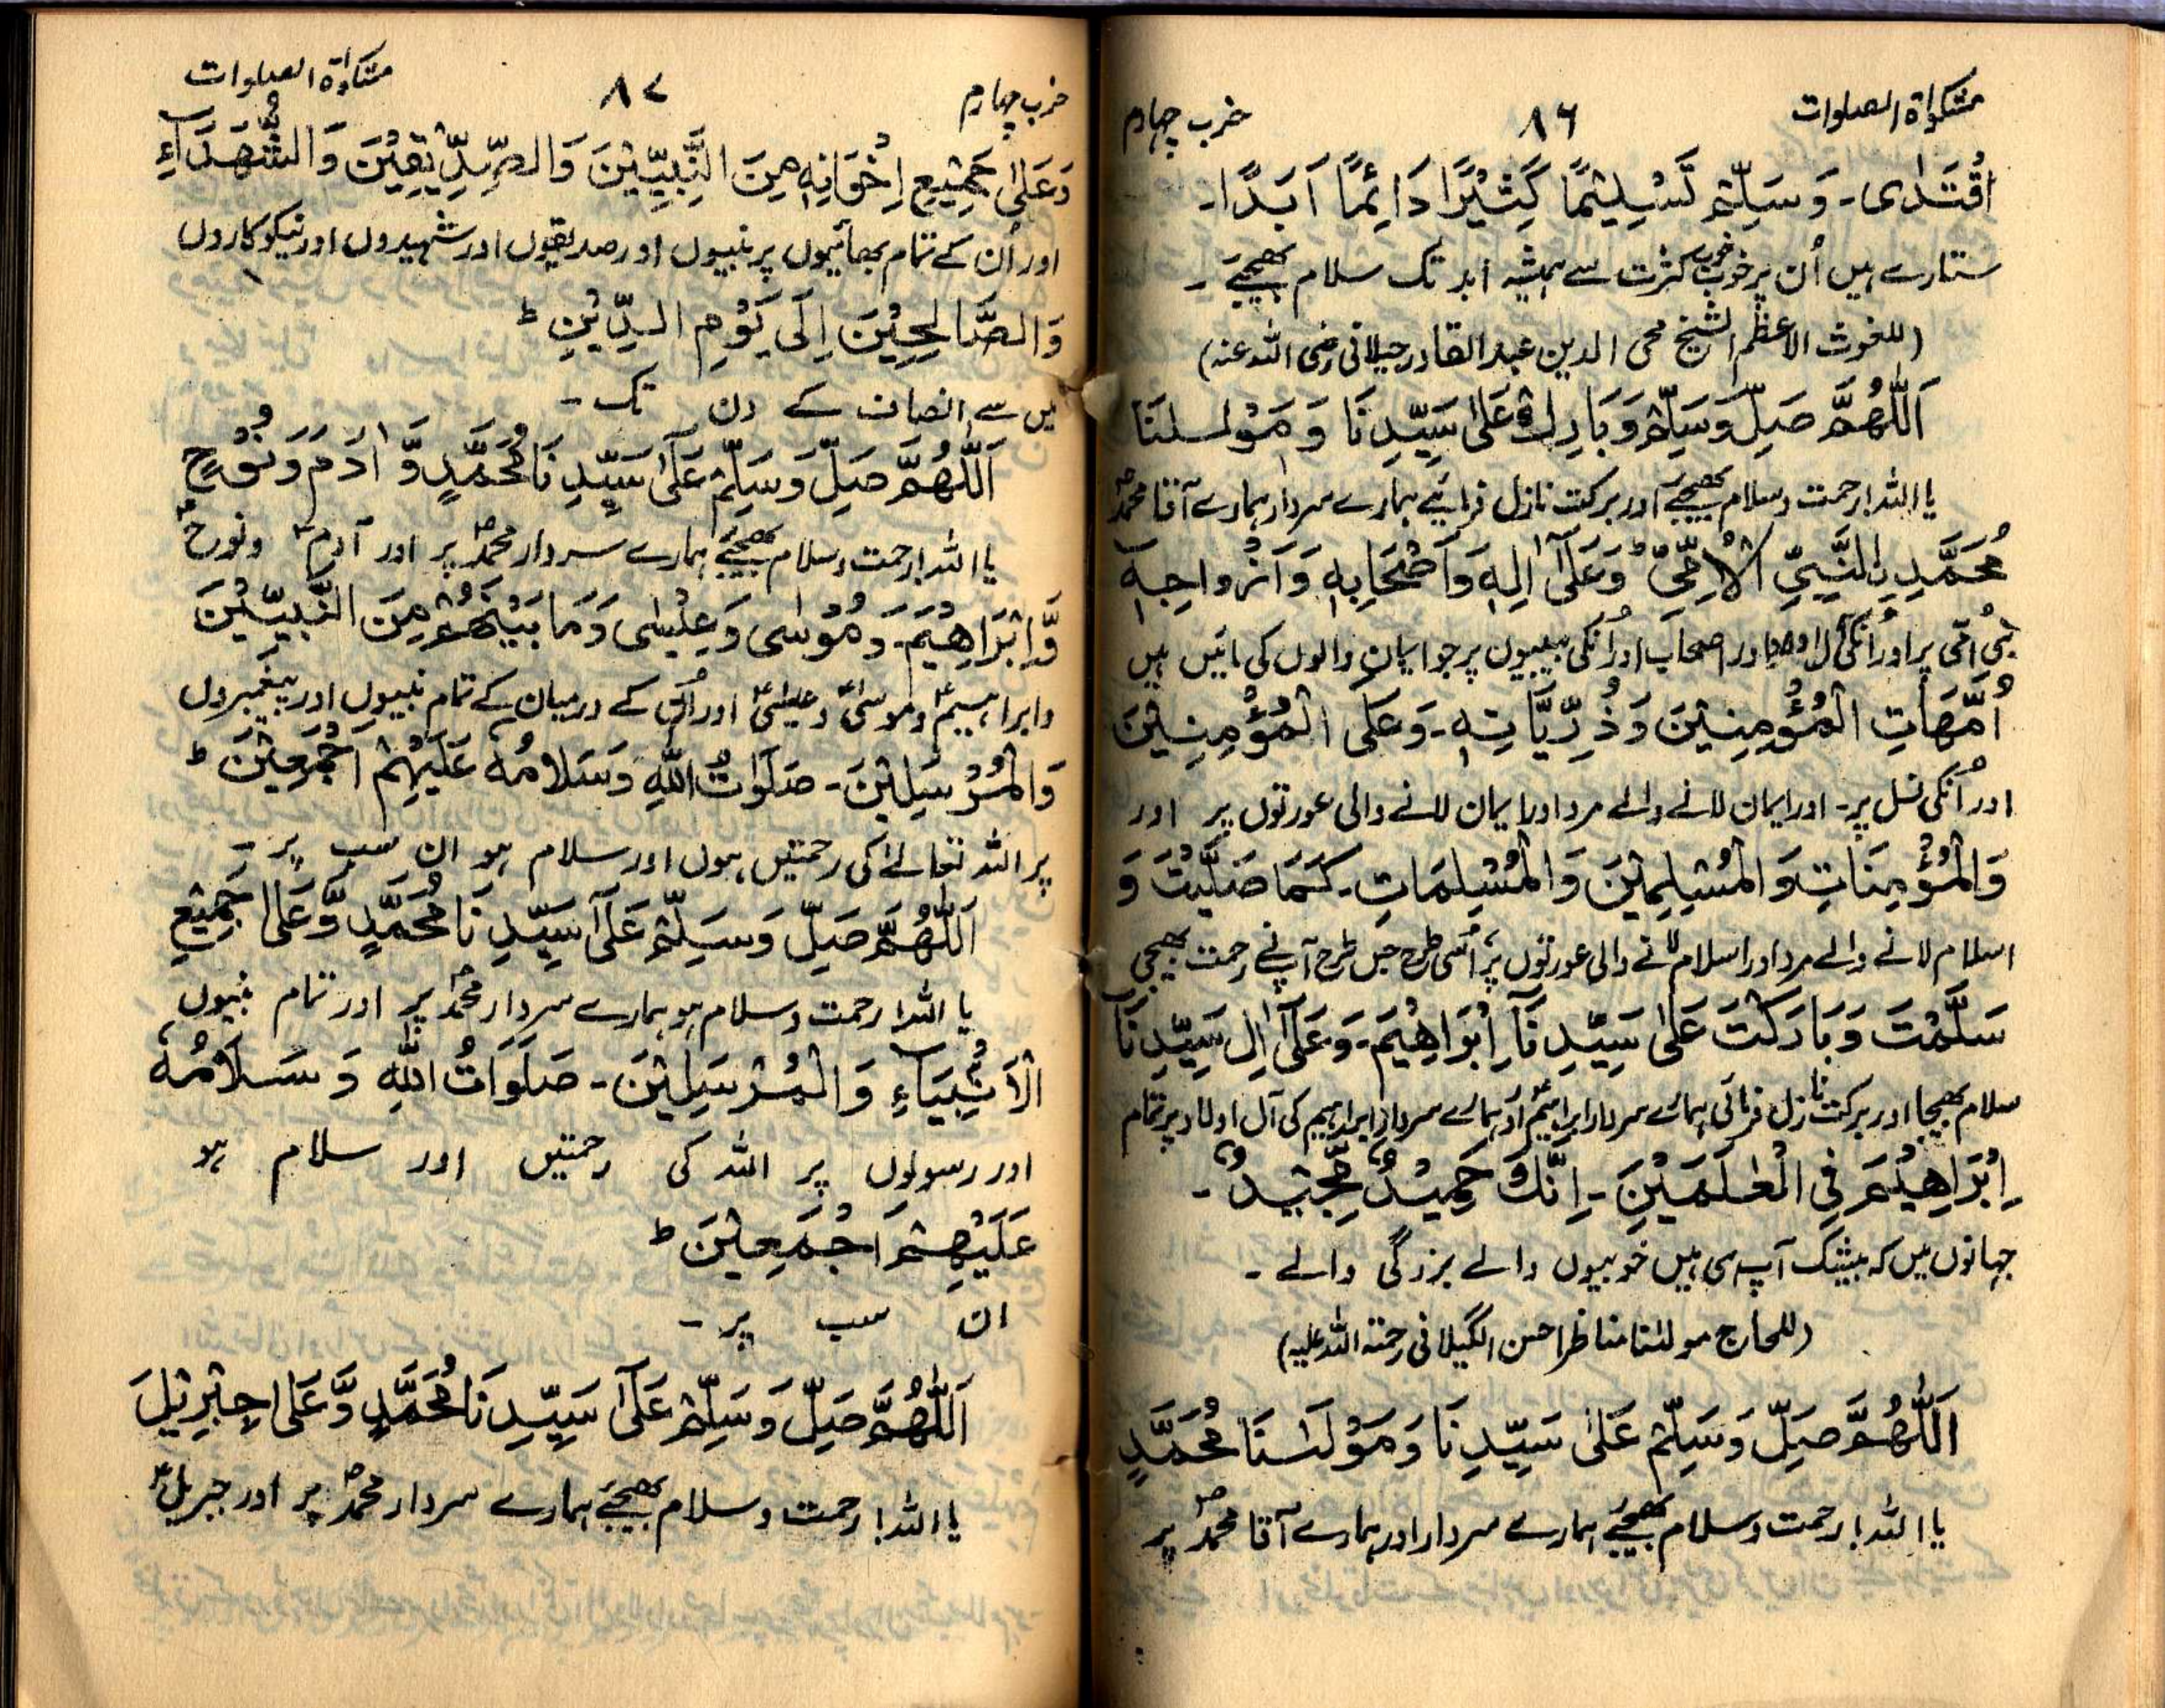 مشکوٰۃ الصلوات ۸۶ حزب چہارم
اقْتَدٰى۔ وَسَلِّمْ تَسْلِيْمًا كَثِيْرًا دَائِمًا اَبَدًا۔
ستارے ہیں اُن پر خوب خوب کثرت سے ہمیشہ ابد تک سلام بھیجیے ۔
(للغوث الاعظم الشیخ محی الدین عبدالقادر جیلانی رضی اللہ عنہ)
اَللّٰهُمَّ صَلِّ وَسَلِّمْ وَبَارِكْ عَلٰى سَيِّدِنَا وَمَوْلٰىنَا
یا اللہ! رحمت و سلام بھیجیے اور برکت نازل فرمائیے ہمارے سردار ہمارے آقا محمدؐ
مُحَمَّدِ ِالنَّبِيِّ الْاُمِّيِّ وَعَلٰٓى اٰلِهٖ وَاَصْحَابِهٖ وَاَزْوَاجِهٖٓ
نبی اُمّی پر اور اُنکی آل اور اصحاب اور اُنکی بیبیوں پر جو ایمان والوں کی مائیں ہیں
اُمَّهَاتِ الْمُؤْمِنِيْنَ وَذُرِّيَّاتِهٖ۔ وَعَلَى الْمُؤْمِنِيْنَ
اور اُنکی نسل پر۔ اور ایمان لانے والے مرد اور ایمان لانے والی عورتوں پر اور
وَالْمُؤْمِنَاتِ وَالْمُسْلِمِيْنَ وَالْمُسْلِمَاتِ۔ كَمَا صَلَّيْتَ وَ
اسلام لانے والے مرد اور اسلام لانے والی عورتوں پر، اُسی طرح جس طرح آپ نے رحمت بھیجی
سَلَّمْتَ وَبَارَكْتَ عَلٰى سَيِّدِنَآ اِبْرَاهِيْمَ۔ وَعَلٰٓى اٰلِ سَيِّدِنَآ
سلام بھیجا اور برکت نازل فرمائی ہمارے سردار ابراہیمؑ اور ہمارے سردار ابراہیم کی آل اولاد پر تمام
اِبْرَاهِيْمَ فِي الْعٰلَمِيْنَ۔ اِنَّكَ حَمِيْدٌ مَّجِيْدٌ۔
جہانوں میں کہ بیشک آپ ہی ہیں خوبیوں والے بزرگی والے ۔
(للحاج مولٰنا مناظر احسن الگیلانی رحمۃ اللہ علیہ)
اَللّٰهُمَّ صَلِّ وَسَلِّمْ عَلٰى سَيِّدِنَا وَمَوْلٰىنَا مُحَمَّدٍ
یا اللہ! رحمت و سلام بھیجیے ہمارے سردار اور ہمارے آقا محمدؐ پر
مشکوٰۃ الصلوات ۸۷ حزب چہارم
وَعَلٰى جَمِيْعِ اِخْوَانِهٖ مِنَ النَّبِيِّيْنَ وَالصِّدِّيْقِيْنَ وَالشُّهَدَآءِ
اور اُن کے تمام بھائیوں پر نبیوں اور صدیقوں اور شہیدوں اور نیکوکاروں
وَالصَّالِحِيْنَ اِلٰى يَوْمِ الدِّيْنِ ط
میں سے انصاف کے دن تک ۔
اَللّٰهُمَّ صَلِّ وَسَلِّمْ عَلٰى سَيِّدِنَا مُحَمَّدٍ وَّاٰدَمَ وَنُوْحٍ
یا اللہ! رحمت و سلام بھیجیے ہمارے سردار محمدؐ پر اور آدمؑ و نوحؑ
وَّاِبْرَاهِيْمَ۔ وَمُوْسٰى وَعِيْسٰى وَمَا بَيْنَهُمْ مِنَ النَّبِيِّيْنَ
و ابراہیمؑ و موسیٰؑ و عیسیٰؑ اور اُن کے درمیان کے تمام نبیوں اور پیغمبروں
وَالْمُرْسَلِيْنَ۔ صَلَوَاتُ اللّٰهِ وَسَلَامُهٗ عَلَيْهِمْ اَجْمَعِيْنَ ط
پر اللہ تعالےٰ کی رحمتیں ہوں اور سلام ہو ان سب پر ۔
اَللّٰهُمَّ صَلِّ وَسَلِّمْ عَلٰى سَيِّدِنَا مُحَمَّدٍ وَّعَلٰى جَمِيْعِ
یا اللہ! رحمت و سلام ہو ہمارے سردار محمدؐ پر اور تمام نبیوں
الْاَنْۢبِيَآءِ وَالْمُرْسَلِيْنَ۔ صَلَوَاتُ اللّٰهِ وَسَلَامُهٗ
اور رسولوں پر اللہ کی رحمتیں اور سلام ہو
عَلَيْهِمْ اَجْمَعِيْنَ ط
ان سب پر ۔
اَللّٰهُمَّ صَلِّ وَسَلِّمْ عَلٰى سَيِّدِنَا مُحَمَّدٍ وَّعَلٰى جِبْرِيْلَ
یا اللہ! رحمت و سلام بھیجیے ہمارے سردار محمدؐ پر اور جبریلؑ